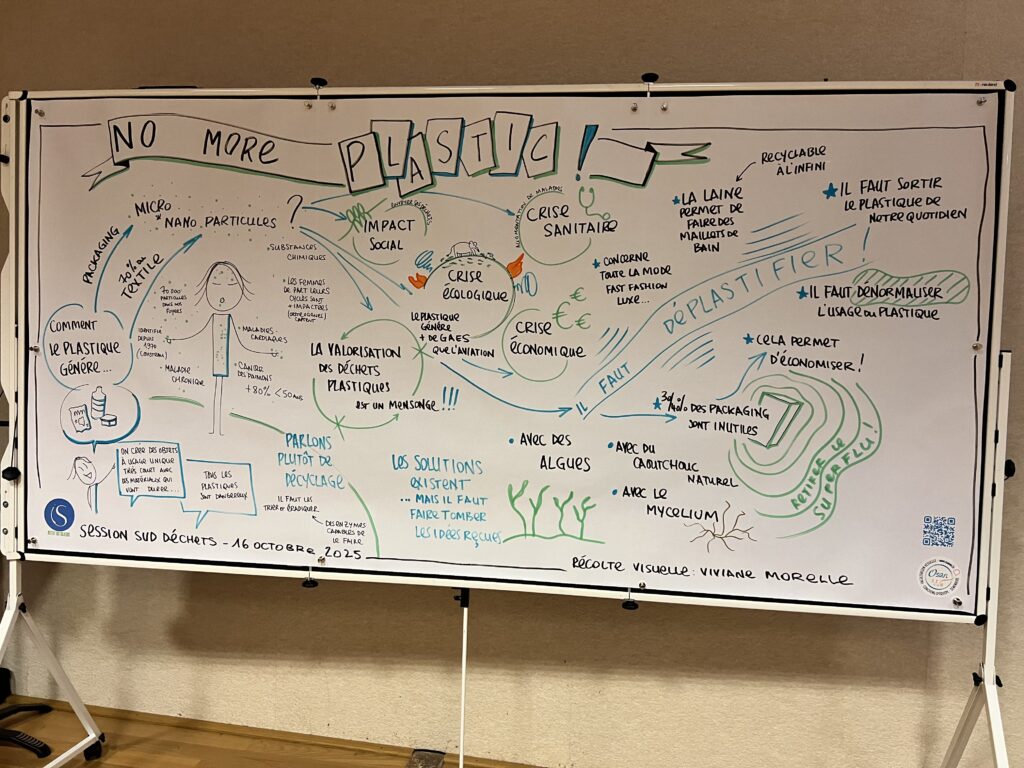 NO MORE PLASTIC !
MICRO
* NANO PARTICULES ?
PACKAGING
70% DU
TEXTILE
COMMENT
LE PLASTIQUE
GÉNÈRE...
70 000
PARTICULES
DANS NOS
FOYERS
IDENTIFIÉ
DEPUIS
1970
• MALADIE
CHRONIQUE
• SUBSTANCES
CHIMIQUES
• LES FEMMES
DE PART LEURS
CYCLES SONT
+ IMPACTÉES
• MALADIES
CARDIAQUES
• CANCER
DES POUMONS
+80% < 50 ANS
ON CRÉE DES OBJETS
À USAGE UNIQUE
TRÈS COURT AVEC
DES MATÉRIAUX QUI
VONT DURER....
TOUS LES
PLASTIQUES
SONT DANGEREUX
IMPACT
SOCIAL
AUGMENTATION DE MALADIES
CRISE
SANITAIRE
CRISE
ÉCOLOGIQUE
LE PLASTIQUE
GÉNÈRE
+ DE GAES
QUE L'AVIATION
CRISE
ÉCONOMIQUE
€
€
€ €
* CONCERNE
TOUTE LA MODE
FAST FASHION
LUXE...
LA VALORISATION
DES DÉCHETS
PLASTIQUES
EST UN MENSONGE !!!
PARLONS
PLUTÔT DE
DÉCYCLAGE
IL FAUT LES
TRIER et ÉRADIQUER
DES ENZYMES
CAPABLES DE
LE FAIRE
LES SOLUTIONS
EXISTENT
... MAIS IL FAUT
FAIRE TOMBER
LES IDÉES REÇUES
• AVEC DES
ALGUES
• AVEC DU
CAOUTCHOUC
NATUREL
• AVEC LE
MYCELIUM
RECYCLABLE
À L'INFINI
* LA LAINE
PERMET DE
FAIRE DES
MAILLOTS DE
BAIN
IL FAUT DÉPLASTIFIER !
* IL FAUT SORTIR
LE PLASTIQUE DE
NOTRE QUOTIDIEN
* IL FAUT DÉNORMALISER
L'USAGE DU PLASTIQUE
* CELA PERMET
D'ÉCONOMISER !
DES PACKAGING
SONT INUTILES
RETIRER LE
SUPERFLU !
SESSION SUD DÉCHETS - 16 OCTOBRE 2025
RÉCOLTE VISUELLE : VIVIANE MORELLE